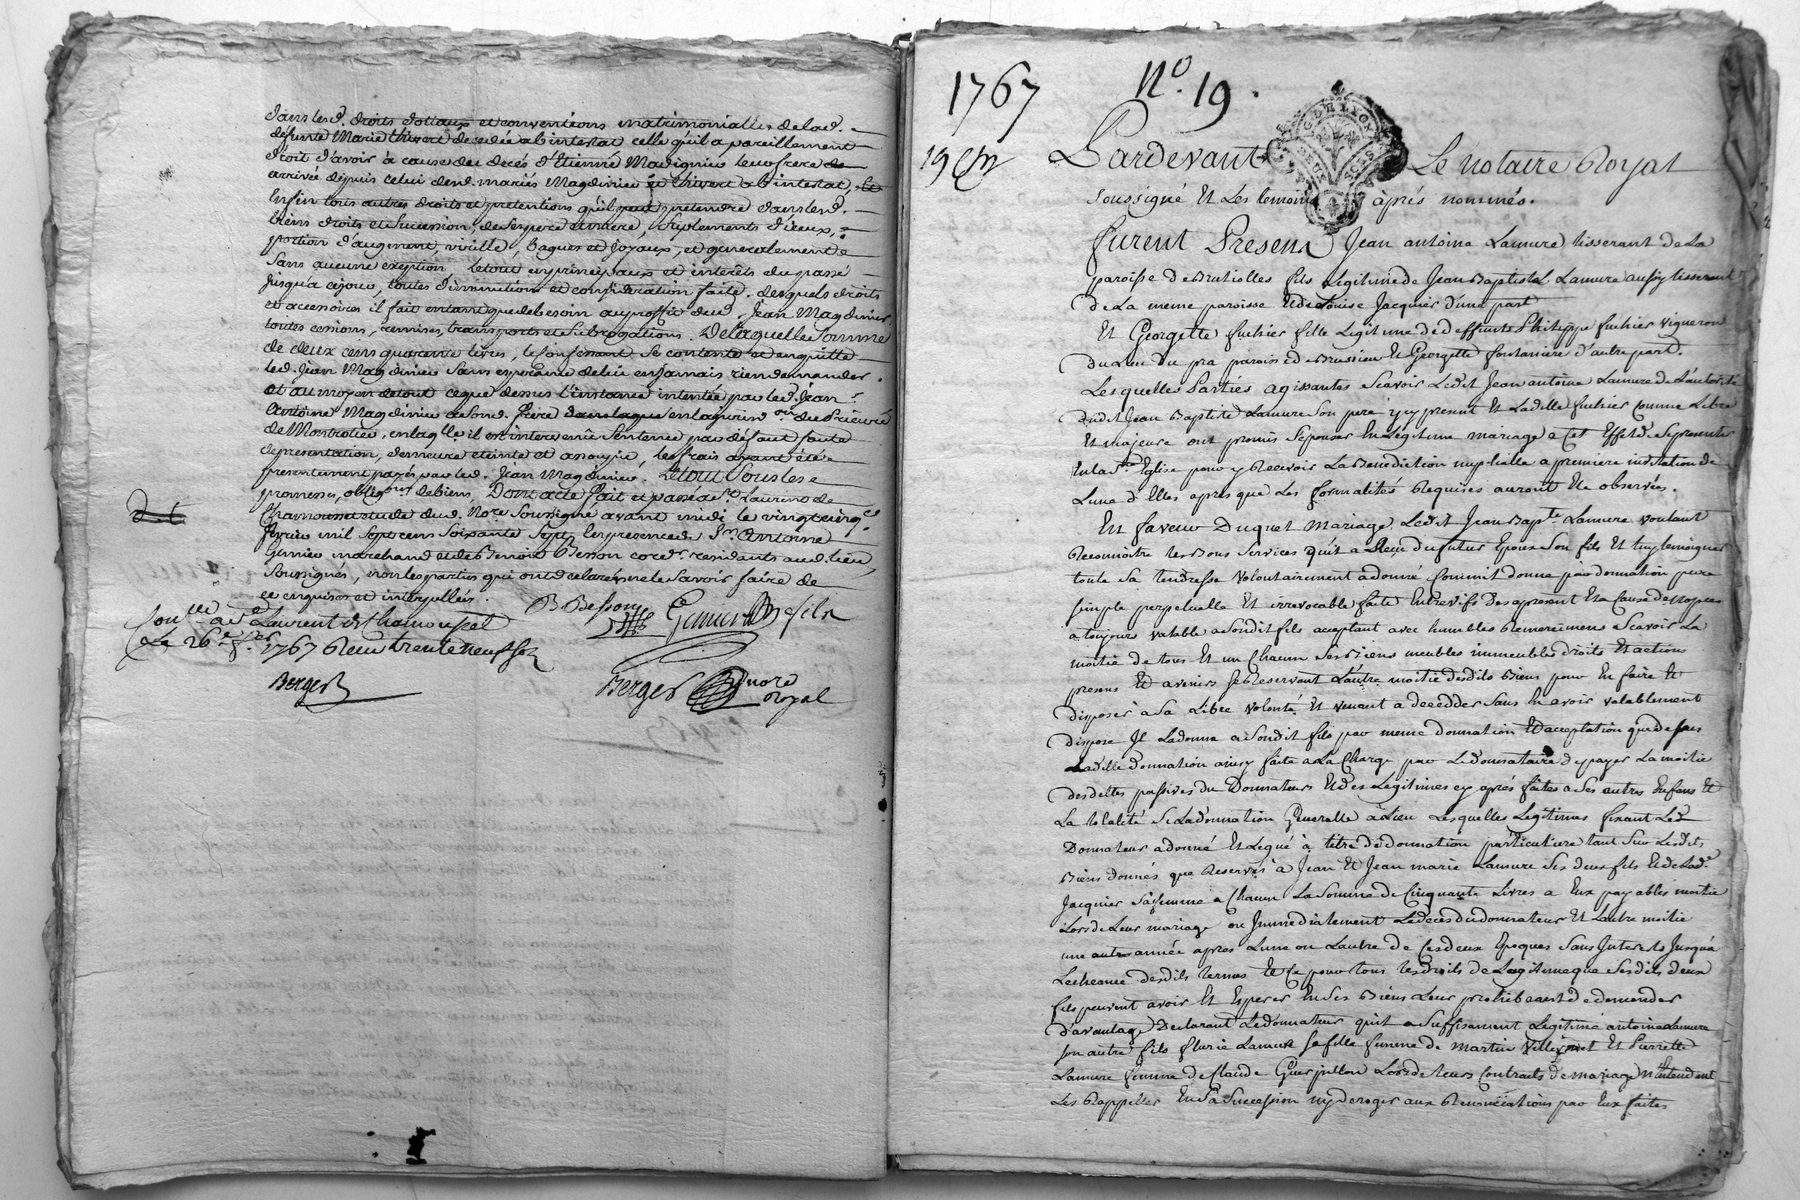 dans lesd. droits dottaux et conventions matrimonialles de lad.
défunte Marie thivert décédée abintestat celle qu'il a pareillement
droit d'avoir à cause du decés d'Etienne Magdinier leur frere
arrivée depuis celui desd. mariés Magdinier et thivert abintestat,
Enfin tous autres droits et pretentions qu'il peut pretendre dans lesd.
biens droits et succession, de l'espece entiere, suplements d'iceux,
portion d'augment, virille, bagues et joyaux, et generalement
sans aucune exeption, le tout en principaux et interêts du passé
jusqu'a ce jour, toutes diminutions et considération faite. desquels droits
et accessoires il fait entant que de besoin au proffit dud. Jean Magdinier
toutes cessions, remises, transports et subrogations. De laquelle somme
de deux cens quarante livres, le confessant se contente et en quitte
led. Jean Magdinier sans esperance de lui en jamais rien demander.
et au moyen de tout ce que dessus l'instance intentée par led. Jean
Antoine Magdinier a sond. frere dans laquelle en la jurisd.on du Prieuré
de Montrotier, en laq.lle il est intervenu sentence par défaut faute
de presentation, demeure eteinte et assoupie, les frais ayant été
presentement payés par led. Jean Magdinier. Le tout sous les
promesses, obligons de biens, Dont acte fait et passé a St Laurent de
Chamousset etude dud. Nore soussigné avant midi le vingt cinq
fevrier mil sept cens soixante sept en presence de Sr. Antoine
Genieu marchand et de Benoit Besson cord.r residants aud. lieu,
soussignés, non les parties qui ont declaré ne le savoir faire de
ce enquises et interpellées.
B Besson Genieu fils
Con.llé à St Laurent de Chamousset
Le 26e f.er 1767 Reçu trente neuf sols
Berger
Berger nore
royal
1767 No. 19.
19
Pardevant Le Notaire Royal
G. DE LYON
DEUX SOLS
soussigné Et Les temoins après nommés.
furent Presens Jean antoine Lamure tisserant de La
paroisse de Brutiolles fils Legitime de Jean Baptiste Lamure aussy tisserant
de La meme paroisse Et de Louise Jacquier d'une part
Et Georgette fuchier fille Legitime de deffunts Philippe fuchier vigneron
du Lieu du pra paroisse de Brussieu Et Georgette fontaniere d'autre part.
Lesquelles Parties agissantes scavoir Ledit Jean antoine Lamure de L'autorité
dudit Jean Baptiste Lamure son pere icy present Et Ladite fuchier comme Libre
Et majeure ont promis s'epouser En Legitime mariage a Cet Effet de se presenter
En La Ste Eglise pour y Recevoir La Benediction nuptialle a premiere invitation de
L'une d'Elles apres que Les formalités Requises auront Eté observés.
En faveur Duquel Mariage, Ledit Jean Bapte Lamure voulant
Reconnoitre Les Bons services qu'il a Reçu du futur Epoux son fils Et luy temoigner
toute sa tendresse volontairement a donné comme il donne par donnation pure
simple perpetuelle Et irrevocable faite Entre vifs des apresent Et a Cause de Noces
a toujours valable a sondit fils acceptant avec humbles Remerciemens scavoir La
moitié de tous Et un Chacun ses Biens meubles immeubles droits Et actions
presens Et avenirs se Reservant L'autre moitié desdits Biens pour En faire Et
disposer à sa Libre volonté. Et venant a deceder sans En avoir valablement
disposé Il La donne a sondit fils par meme donnation Et acceptation que dessus
Ladite donnation ainsy faite a La Charge par Le donnataire de payer La moitié
des dettes passives du Donnateur Et des Legitimes cy après faites a ses autres Enfans Et
La totalité si La donnation Generalle a Lieu Lesquelles Legitimes fixant Led.
Donnateur a donné Et Legué à titre de donnation particuliere tant sur Lesdits
Biens donnés que Reservés à Jean Et Jean marie Lamure ses deux fils Et de Lade
Jacquier sa femme a Chacun La somme de Cinquante Livres a Eux payables moitié
Lors de Leur mariage ou Immediatement Le deces du donnateur Et L'autre moitié
une autre année après L'une ou L'autre de Ces deux Epoques sans Interets Jusqu'a
L'echeance desdits termes Et Ce pour tous Les droits de Legitime que sesdits deux
fils peuvent avoir Et Esperer En ses Biens Leur prohibeant de demander
d'avantage Declarant Le donnateur qu'il a suffisament Legitimé antoine Lamure
son autre fils flurie Lamure sa fille femme de Martin Et Pierrette
Lamure femme de Claude Guerpillon Lors de Leurs Contrats de mariage N'entendant
Les Rappeller En sa succession ny deroger aux Renonciations par Eux faites